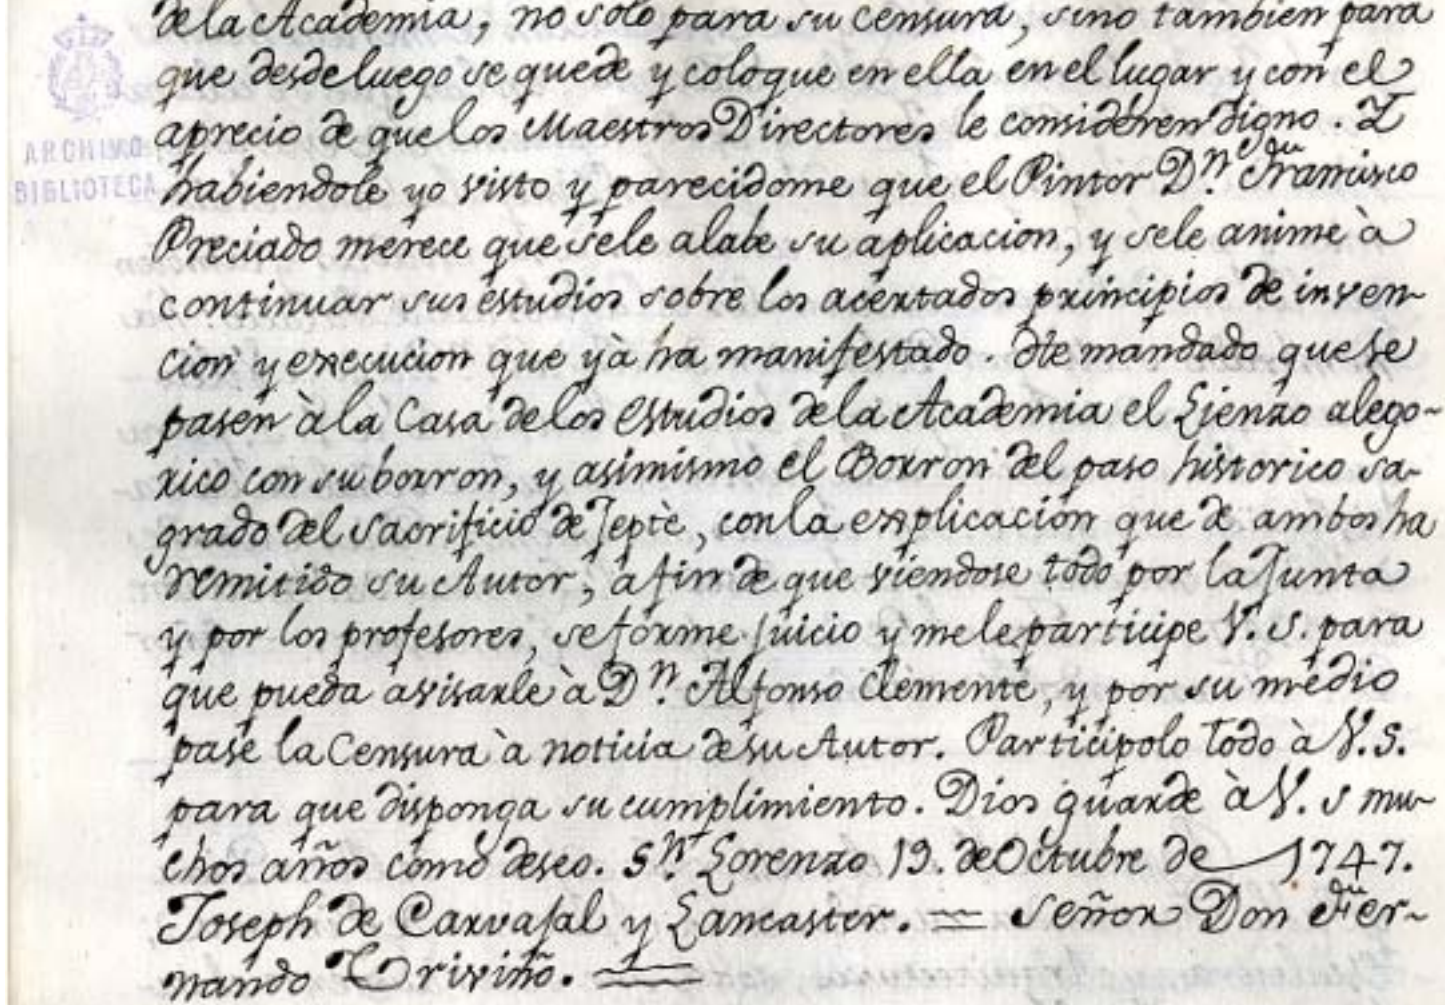 dela Academia, no solo para su censura, sino tambien para
que desde luego se quede y coloque en ella en el lugar y con el
aprecio de que los Maestros Directores le consideren digno. Y
ARCHIVO
BIBLIOTECA
habiendole yo visto y parecidome que el Pintor Dn. Francisco
Preciado merece que sele alabe su aplicacion, y sele anime à
continuar sus estudios sobre los acertados principios de inven-
cion y execucion que yà ha manifestado. He mandado que se
pasen à la Casa de los estudios dela Academia el Lienzo alego-
rico con su borron, y asimismo el Borron del paso historico sa-
grado del sacrificio de Jeptè, con la explicación que de ambos ha
remitido su Autor, a fin de que viendose todo por la Junta
y por los profesores, se forme juicio y mele participe V. S. para
que pueda avisarle à Dn. Alfonso Clemente, y por su medio
pase la Censura à noticia de su Autor. Participolo todo à V. S.
para que disponga su cumplimiento. Dios guarde à V. S mu-
chos años como deseo. Sn. Lorenzo 19. de Octubre de 1747.
Joseph de Carvajal y Lancaster. = Señor Don Fer-
nando Triviño. =